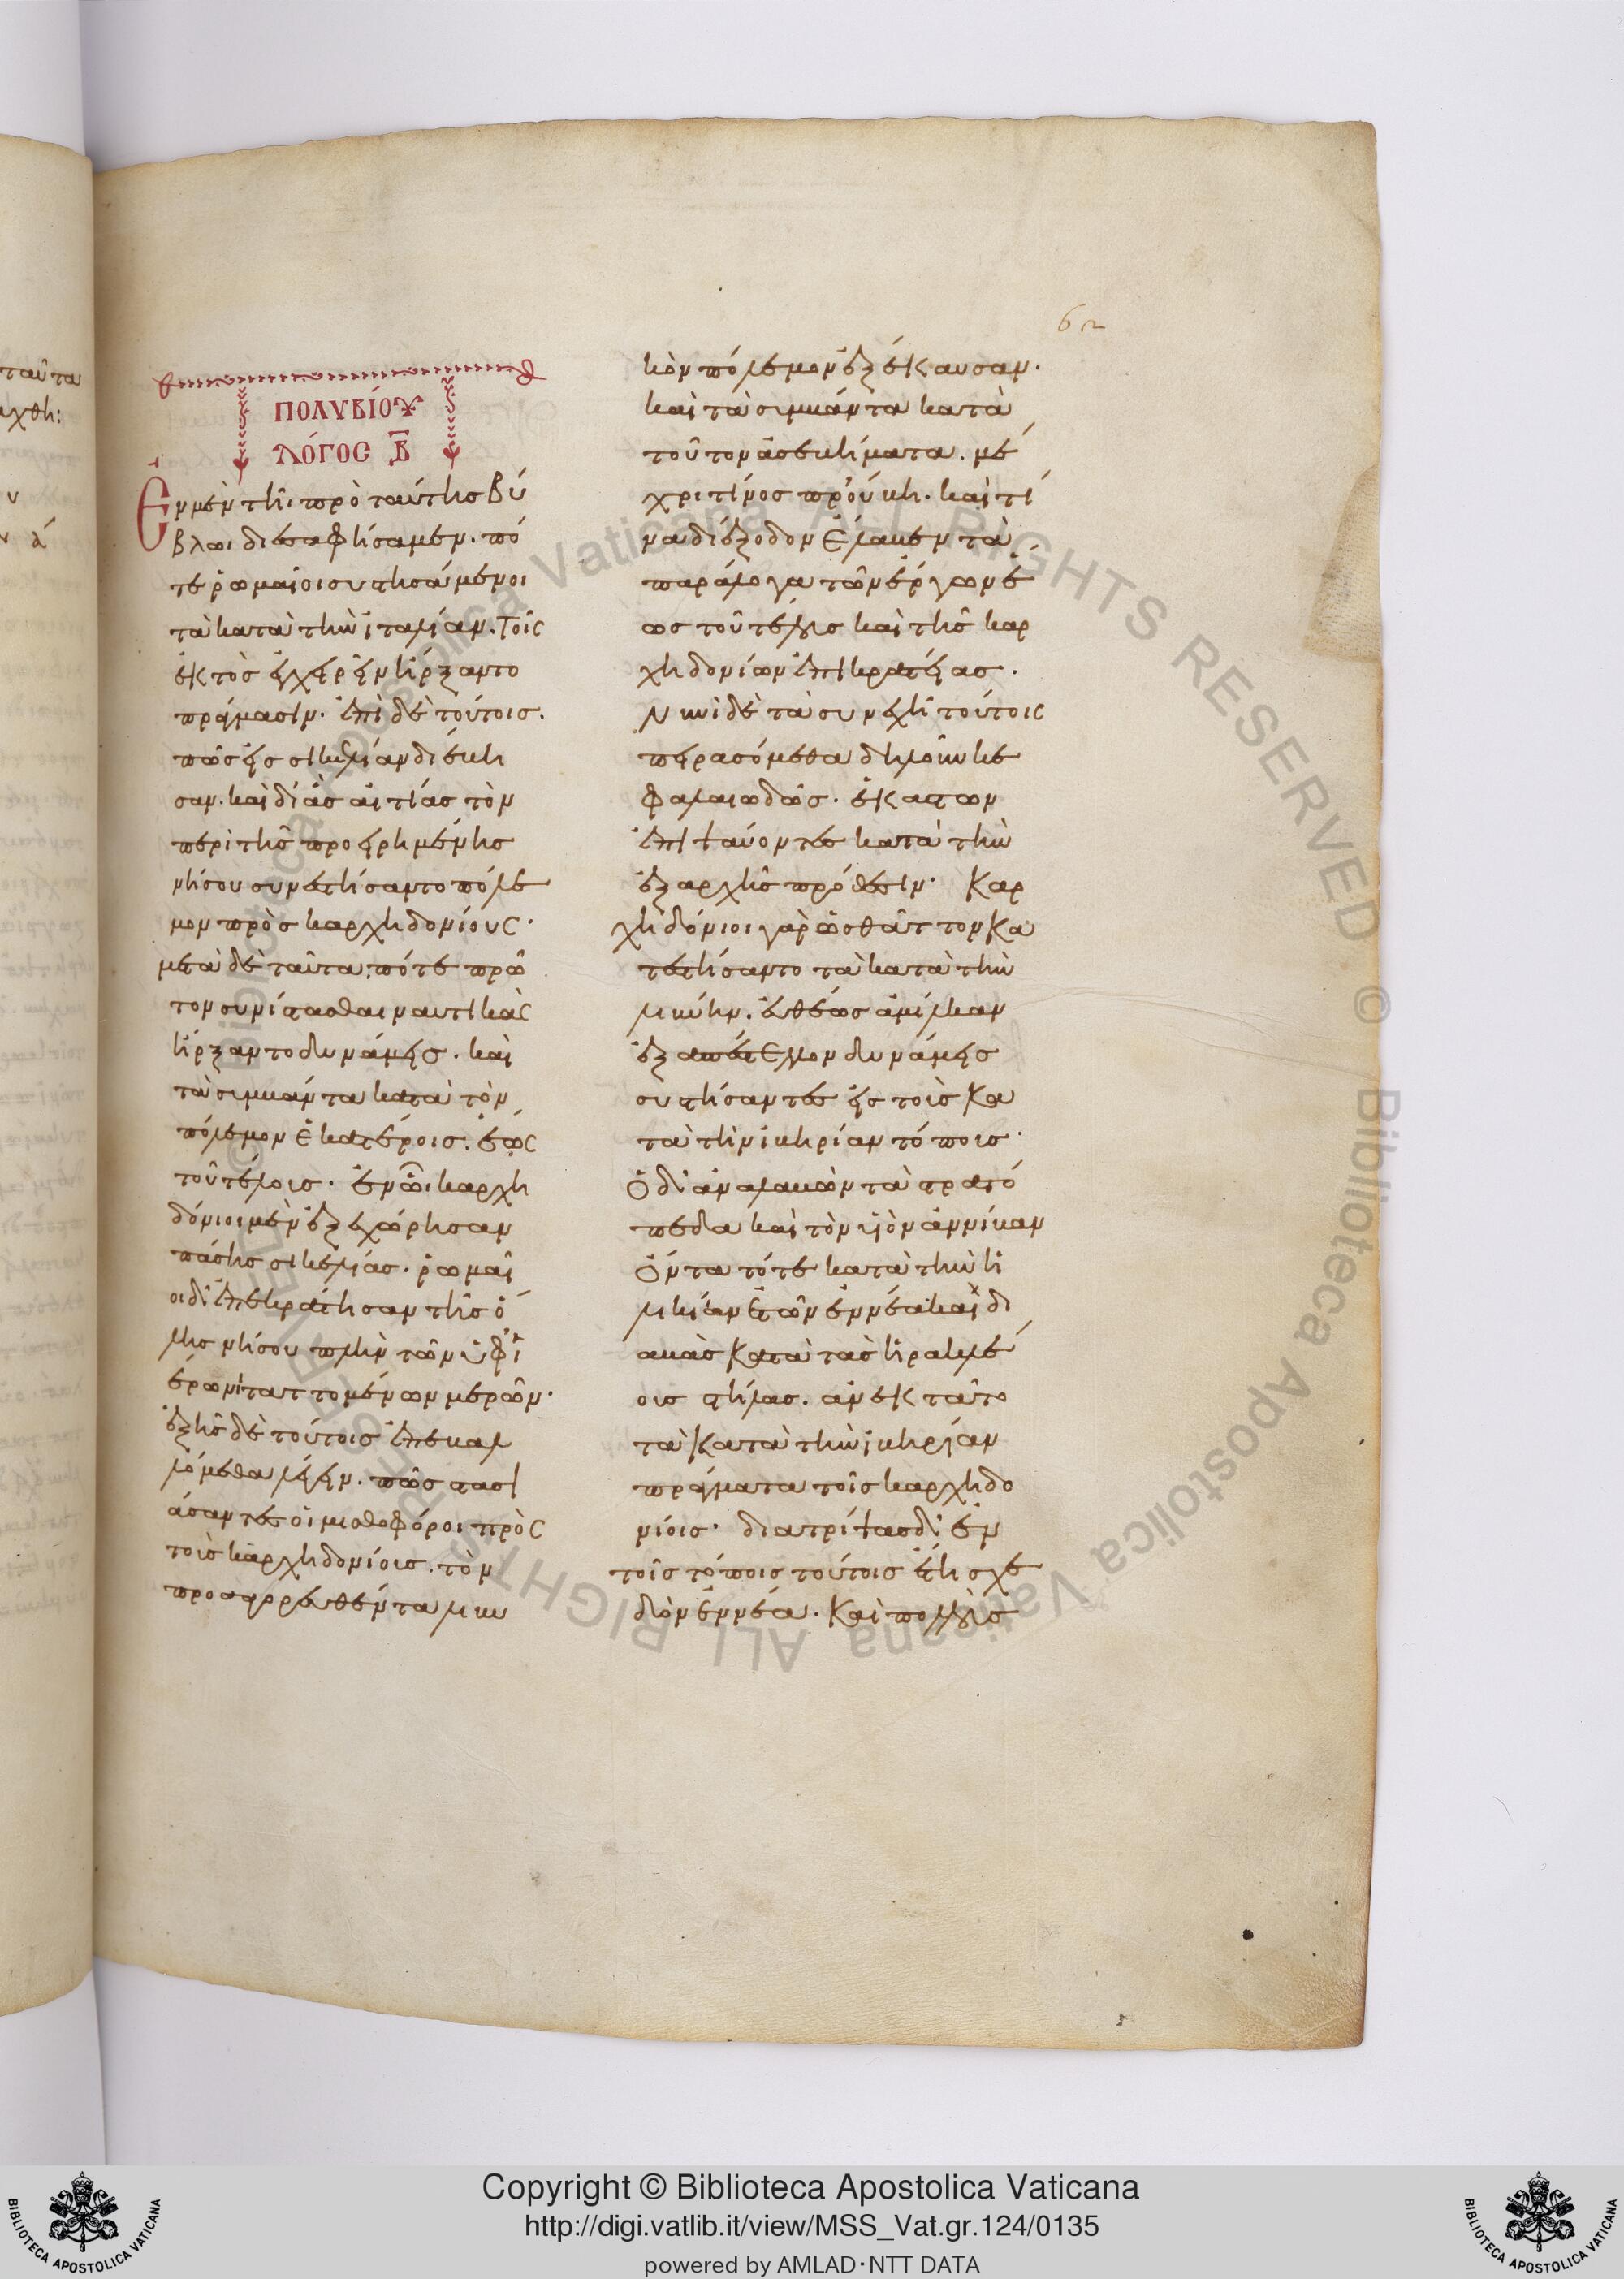 62
ΠΟΛΥΒΙΟΥ
ΛΌΓΟΣ Β
Ἐν μὲν τῆι πρὸ ταύτης βύ
βλωι διεσαφήσαμεν. πό
τε ῥωμαῖοι συστησάμενοι
τὰ κατὰ τὴν ἰταλίαν. τοῖς
ἐκτὸς ἐγχειρεῖν ἤρξαντο
πράγμασιν. ἐπὶ δὲ τούτοις.
πῶς εἰς σικελίαν διέβη
σαν. καὶ δι' ἃς αἰτίας τὸν
περὶ τῆς προειρημένης
νήσου συνεστήσαντο πόλε
μον πρὸς καρχηδονίους.
μετὰ δὲ ταῦτα πότε πρῶ
τον συνίστασθαι ναυτικὰς
ἤρξαντο δυνάμεις. καὶ
τὰ συμβάντα κατὰ τὸν
πόλεμον ἑκατέροις. ἕως
τοῦ τέλους. ἐν ὧι καρχη
δόνιοι μὲν ἐξεχώρησαν
πάσης σικελίας. ῥωμαῖ
οι δ' ἐπεκράτησαν τῆς ὅ
λης νήσου πλὴν τῶν ὑφ' ϊ
έρωνι ταττομένων μερῶν.
ἑξῆς δὲ τούτοις ἐπεβαλ
λόμεθα λέγειν. πῶς στασι
άσαντες οἱ μισθοφόροι πρὸς
τοὺς καρχηδονίους. τὸν
προσαγορευθέντα λιβυ
κὸν πόλεμον ἐξέκαυσαν.
καὶ τὰ συμβάντα κατὰ
τοῦτον ἀσεβήματα. μέ
χρι τίνος προύβη. καὶ τί
να διέξοδον ἔλαβεν τὰ
παράλογα τῶν ἔργων ἕ
ως τοῦ τέλους καὶ τῆς καρ
χηδονίων ἐπικρατείας.
Νυνὶ δὲ τὰ συνεχῆ τούτοις
πειρασόμεθα δηλοῦν κε
φαλαιωδῶς. ἑκάστων
ἐπιψαύοντες κατὰ τὴν
ἐξ ἀρχῆς πρόθεσιν. Καρ
χηδόνιοι γὰρ ὡς θᾶττον κα
τεστήσαντο τὰ κατὰ τὴν
λιβύην. εὐθέως ἀμίλκαν
ἐξαπέστελλον δυνάμεις
συστήσαντες εἰς τοὺς κα
τὰ τὴν ἰβηρίαν τόπους.
Ὁ δ' ἀναλαβὼν τὰ στρατό
πεδα καὶ τὸν υἱὸν ἀννίβαν
ὄντα τότε κατὰ τὴν ἡ
λικίαν ἐτῶν ἐννέα καὶ δι
αβὰς κατὰ τὰς ἡρακλέ
ους στήλας. ἀνεκτᾶτο
τὰ κατὰ τὴν ἰβηρίαν
πράγματα τοῖς καρχηδο
νίοις. διατρίψας δ' ἐν
τοῖς τόποις τούτοις ἔτη σχε
δὸν ἐννέα. καὶ πολλοὺς
Copyright © Biblioteca Apostolica Vaticana
http://digi.vatlib.it/view/MSS_Vat.gr.124/0135
powered by AMLAD·NTT DATA
BIBLIOTECA APOSTOLICA VATICANA
BIBLIOTECA APOSTOLICA VATICANA